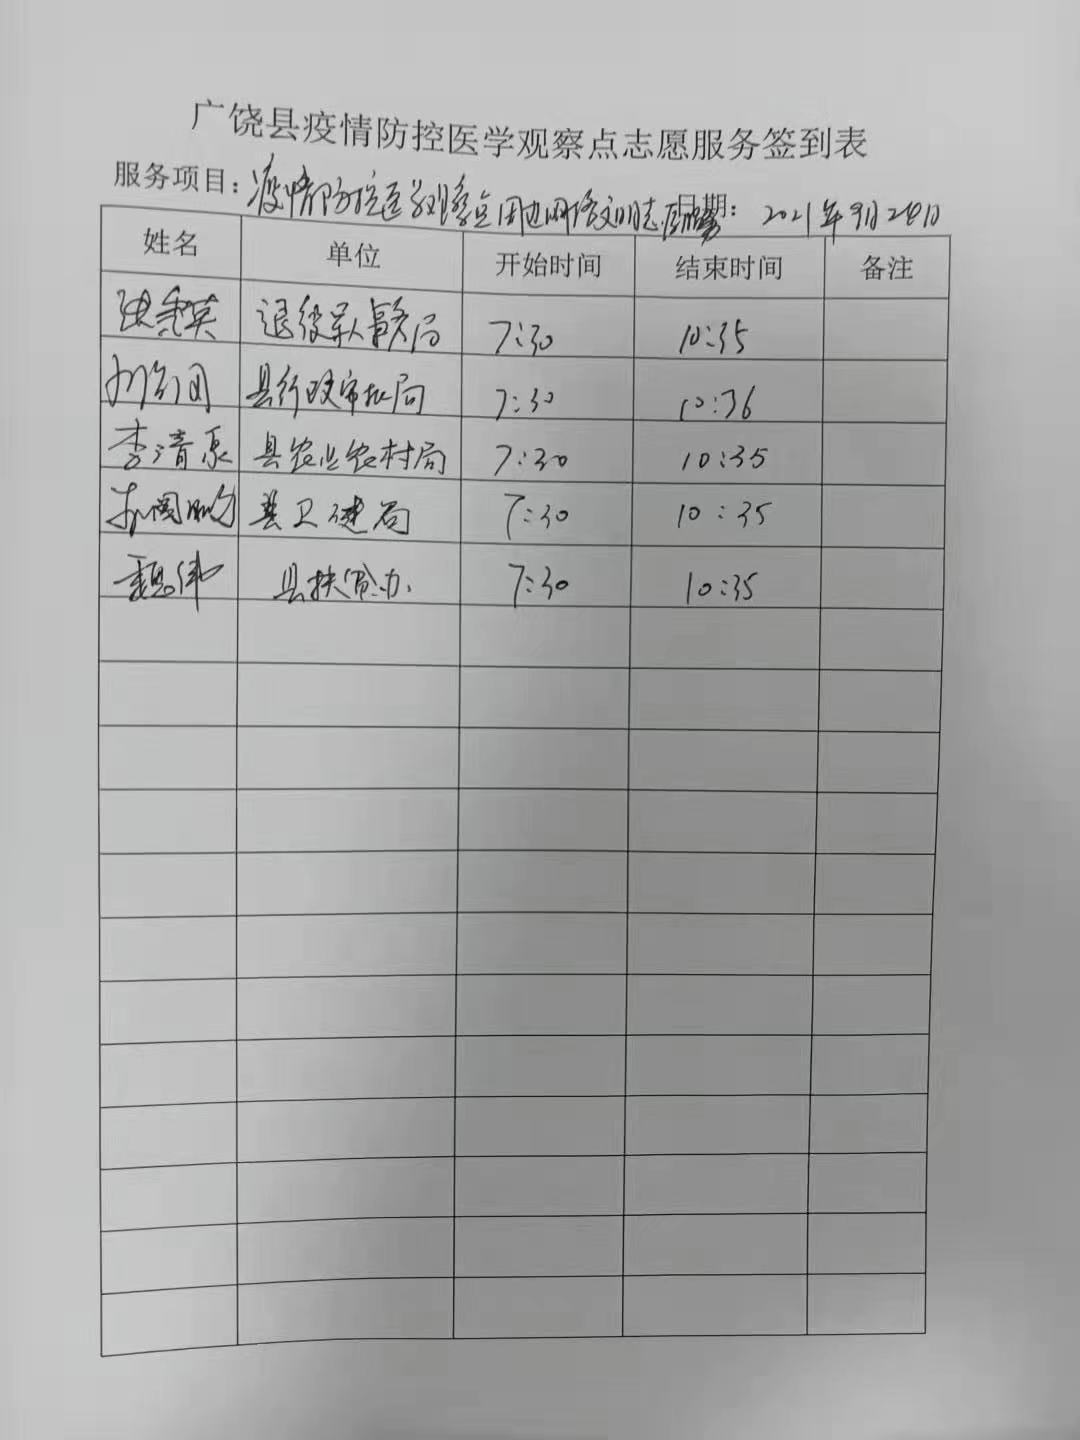 广饶县疫情防控医学观察点志愿服务签到表
服务项目：疫情防控医学观察点周边网络文明志愿服务 日期：2021年9月24日
姓名 单位 开始时间 结束时间 备注
退役军人事务局 7:30 10:35
县行政审批局 7:30 10:36
李清泉 县农业农村局 7:30 10:35
县卫健局 7:30 10:35
魏伟 县扶贫办 7:30 10:35